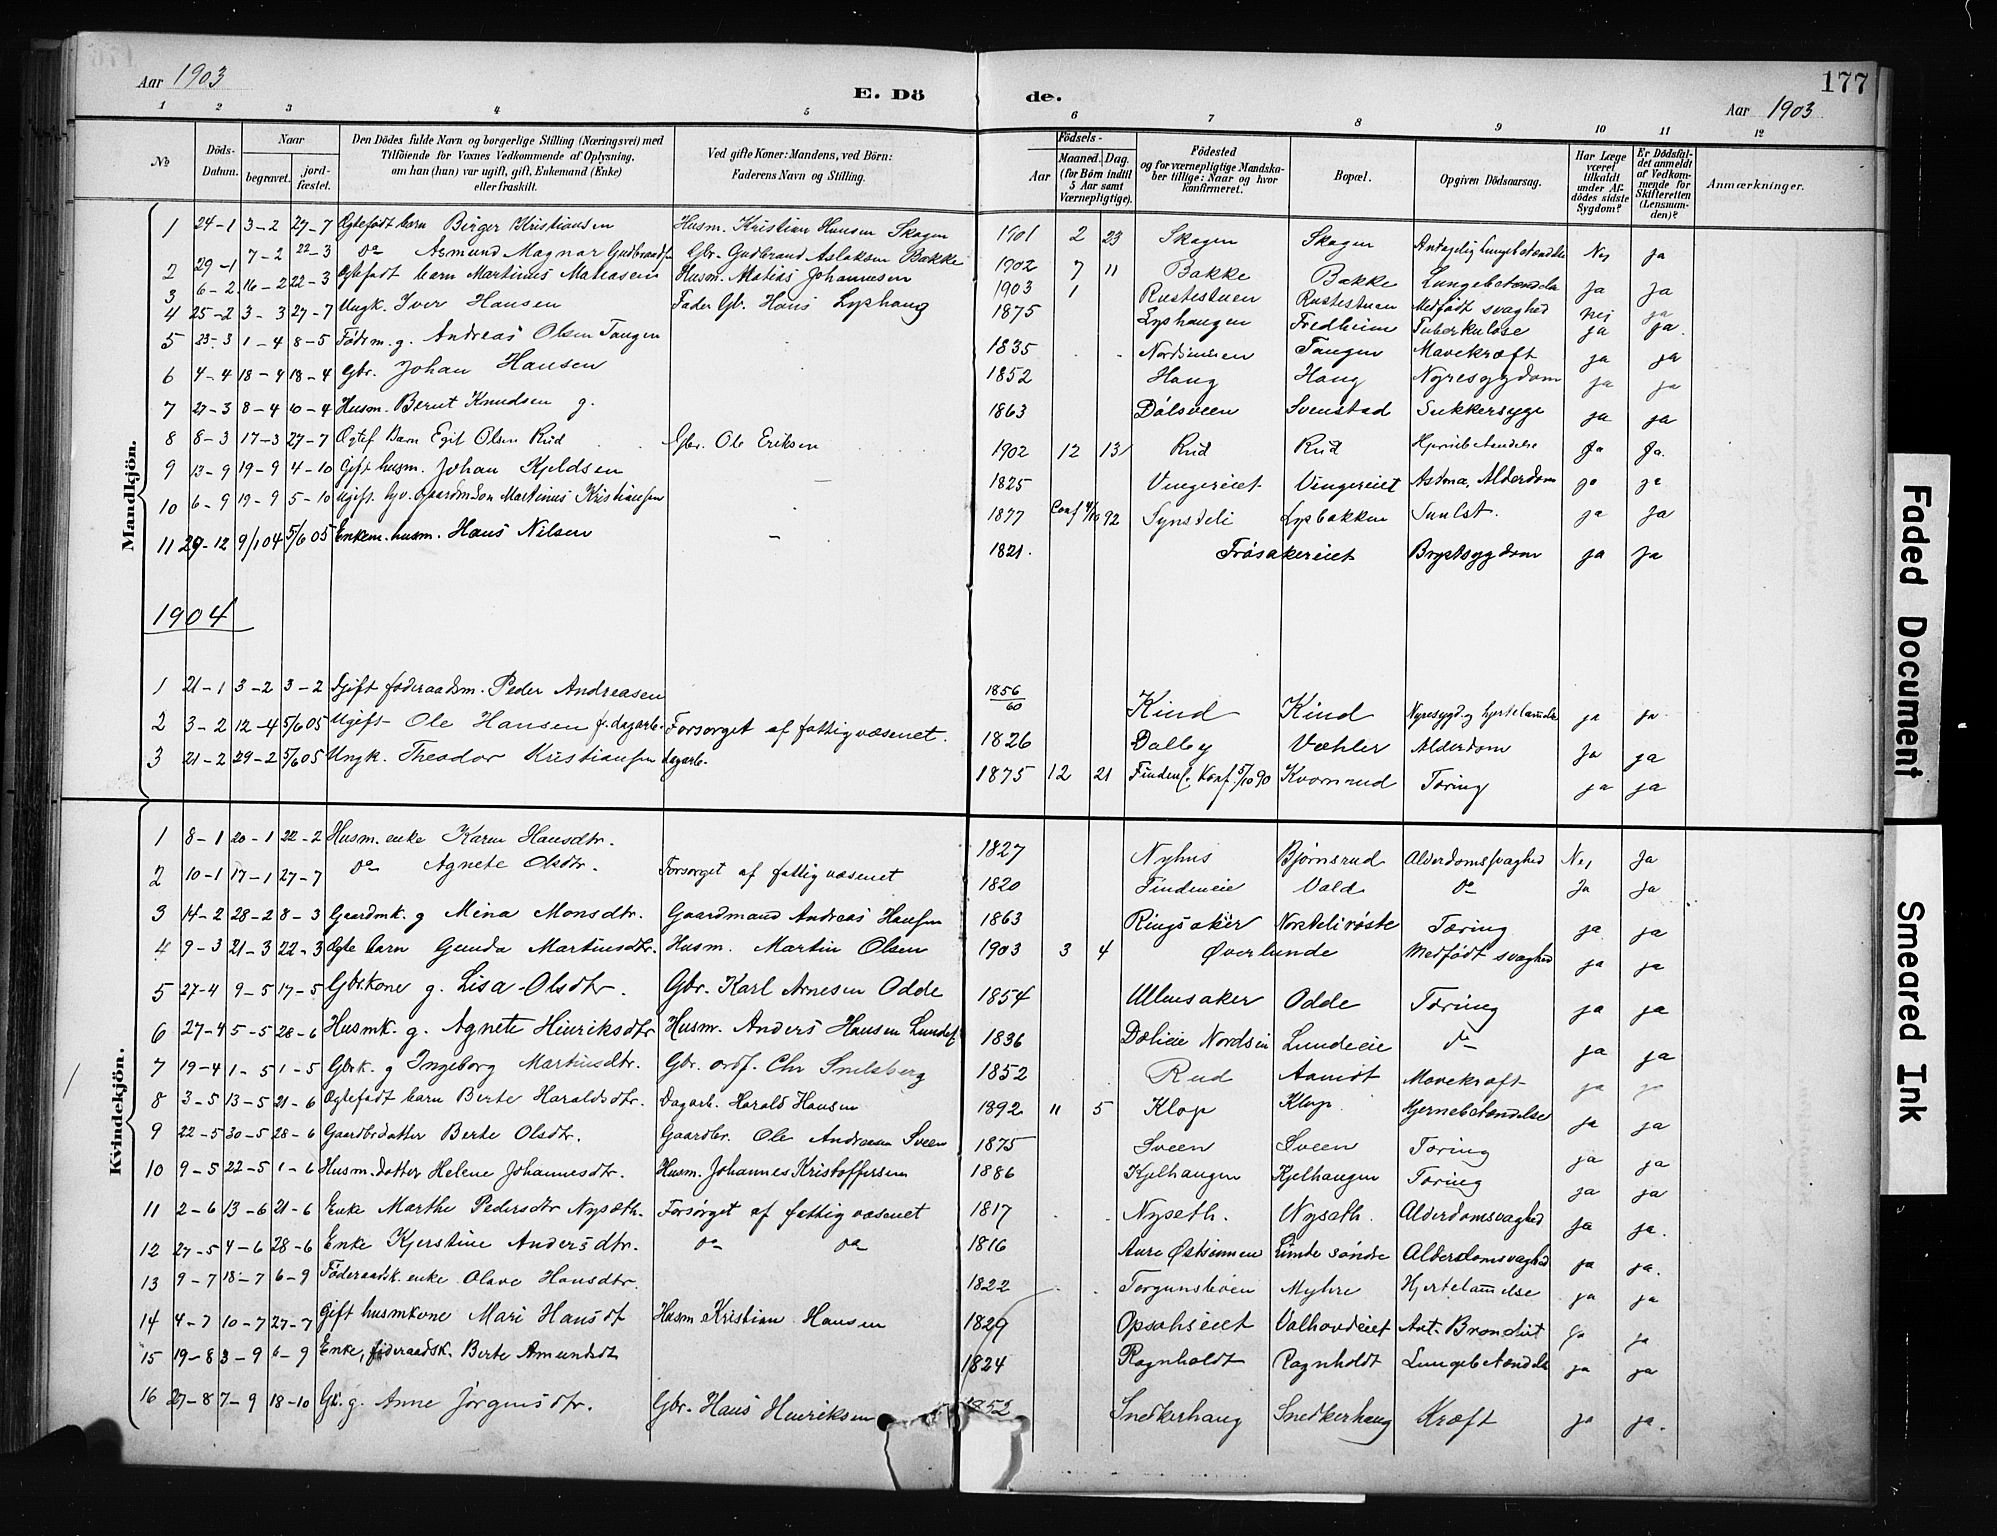 Aar 1903
E. Dö de.
177
Aar 1903
1 2 3 4 5 6 7 8 9 10 11 12
No
Döds-Datum.
Naar
begravet.
jord-fæstet.
Den Dödes fulde Navn og borgerlige Stilling (Næringsvei) med
Tilföiende for Voxnes Vedkommende af Oplysning,
om han (hun) var ugift, gift, Enkemand (Enke)
eller fraskilt.
Ved gifte Koner: Mandens, ved Börn:
Faderens Navn og Stilling.
Födsels-
Aar
Maaned. Dag.
(for Börn indtil
5 Aar samt
Værnepligtige).
Födested
og for værnepligtige Mandska-
ber tillige: Naar og hvor
konfirmeret.
Bopæl.
Opgiven Dödsaarsag.
Har Læge
været
tilkaldt
under Af-
dödes sidste
Sygdom?
Er Dödsfal-
det anmeldt
af Vedkom-
mende for
Skifteretten
(Lensman-
den)?
Anmærkninger.
Mandkjön.
1 24-1 3-2 27-7 Ægtefødt barn Birger Kristiansen Husm. Kristian Hansen Skogen 1901 2 23 Skogen Skogen Antagelig Lungebetændelse Nej Ja
2 29-1 7-2 22-3 do Asmund Magnar Gudbrands. Gbr. Gudbrand Aslaksen Bakke 1902 7 11 Bakke Bakke Lungebetændelse Ja Ja
3 6-2 16-2 22-3 Ægtefødt barn Martinus Matiasen Husm. Matias Johannesen 1903 1 Rustestuen Rustestuen Medfødt svaghed nej ja
4 25-2 3-3 27-7 Ungk. Iver Hansen Fader Gb. Hans Lyshaug 1875 Lyshaugen Fredheim Tuberkulose ja ja.
5 23-3 1-4 8-5 Føderm. g. Andreas Olsen Tangen 1835 Nordsinnen Tangen Mavekræft ja ja
6 4-4 18-4 18-4 Gbr. Johan Hansen 1852 Haug Haug Nyresygdom ja ja
7 27-3 8-4 10-4 Husm. Bernt Knudsen g. 1863 Dølsveen Svenstad Sukkersyge ja ja
8 8-3 17-3 27-7 Ægtef Barn Egil Olsen Rud Gbr. Ole Eriksen 1902 12 13 Rud Rud Hjernebetændelse Ja Ja.
9 13-9 19-9 4-10 Gift husm. Johan Kjeldsen 1825 Vingereiet Vingereiet Astma, Alderdom ja ja
10 6-9 19-9 5-10 Ugift Gv. gaardm. Søn Martinus Kristiansen 1877 Conf 4/10 92 Synsteli Lysbakken ja ja
11 29-12 9/104 5/6 05 Enkem. husm. Hans Nilsen 1821. Frøsakereiet Brystsygdom ja ja
1904
1 21-1 3-2 3-2 Gift føderaadsm. Peder Andreasen 1856/60 Kind Kind Nyresygd. og hjertelammelse ja ja.
2 3-2 12-4 5/6 05 Ugift- Ole Hansen f. dagarb. Forsorget af fattigvæsenet. 1826 Dalby Væhler Alderdom Ja ja
3 21-2 29-2 5/6 05 Ungk. Theodor Kristiansen dagarb. 1875 12 21 Konf. 5/10 90 Kvornrud Tæring ja ja
Kvindekjön.
1 8-1 20-1 22-2 Husm. enke Karen Hansdtr. 1827 Nyhus Bjørnsrud Alderdomssvaghed Nej Ja
2 10-1 17-1 27-7 do Agnete Olsdtr. Forsorget af fattigvæsenet 1820 Findeneie Vold do Ja Ja
3 14-2 28-2 8-3 Gaardmk. g Mina Monsdtr. Gaardmand Andreas Hansen 1863 Ringsaker Tæring ja ja
4 9-3 21-3 22-3 Ægte barn Gunda Martinsdtr. Husm. Martin Olsen 1903 3 4 Øverlunde Medfødt svaghed ja ja
5 27-4 9-5 17-5 Gbr.kone g. Lisa Olsdtr. Gbr. Karl Arnesen Odde 1854 Ullensaker Odde Tæring ja ja
6 27-4 5-5 28-6 Husmk. g. Agnete Hinriksdtr Husm. Anders Hansen Lundef 1836 Dølieie Nordsin Lundeeie do ja ja
7 19-4 1-5 1-5 Gbrk. g Ingeborg Martinsdtr. Gbr. ordf. Chr Snilsberg 1852 Rud Aamot Mavekræft ja ja
8 3-5 13-5 21-6 Ægtefødt barn Berte Haraldsdtr. Dagarb. Harald Hansen 1892 11 5 Klop Klop. Hjernebetændelse ja ja
9 22-5 30-5 28-6 Gaardbr.datter Berte Olsdtr. Gaardbr. Ole Andreassen Sveen 1875 Sveen Sveen Tæring ja ja
10 9-5 22-5 1-6 Husm. datter Helene Johannesdtr. Husm. Johannes Kristoffersen 1886 Kjelhaugen Kjelhaugen Tæring ja ja
11 2-6 13-6 21-6 Enke Marthe Pedersdtr Nysæth. Forsørget af fattigvæsenet 1817 Nysæth. Nysæth. Alderdomsvaghed ja ja.
12 27-5 4-6 28-6 Enke Kjerstine Andersdtr. do do 1816 Aure Østsinnen Linde søndre Alderdomsvaghed ja ja.
13 9-7 18-7 6-9 Føderaadsk. enke Olave Hansdtr. 1822 Myhre Hjertelammelse ja ja
14 4-7 10-7 27-7 Gift husmkone Mari Hansdt Husm. Kristian Hansen 1829 Opsahleiet Valhovdeiet Ak. Bronchit Ja ja
15 19-8 3-9 6-9 Enke, føderaadsk. Berte Amundsdt 1824 Ragnholdt Ragnholdt Lungebetændelse ja ja
16 27-8 7-9 18-10 Gk. g. Anne Jørgensdtr. Gbr. Hans Henriksen 1852 Snedkerhaug Snedkerhaug Kræft ja ja.
Faded Document
Smeared Ink